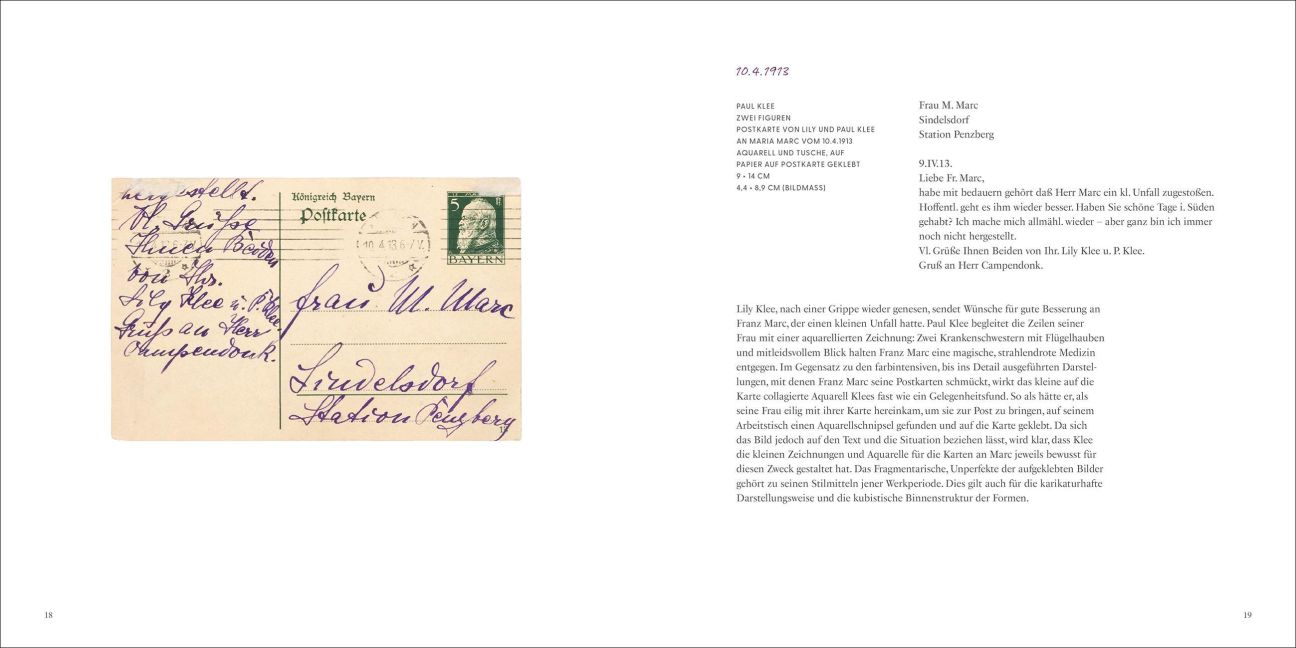 hergestellt.
Vl. Grüße
Ihnen Beiden
von Ihr.
Lily Klee u. P. Klee.
Gruß an Herr
Campendonk.
Königreich Bayern
Postkarte
5
BAYERN
10.4.13.6-7V.
Frau M. Marc
Sindelsdorf
Station Penzberg
18
10.4.1913
PAUL KLEE
ZWEI FIGUREN
POSTKARTE VON LILY UND PAUL KLEE
AN MARIA MARC VOM 10.4.1913
AQUARELL UND TUSCHE, AUF
PAPIER AUF POSTKARTE GEKLEBT
9 × 14 CM
4,4 × 8,9 CM (BILDMASS)
Frau M. Marc
Sindelsdorf
Station Penzberg
9.IV.13.
Liebe Fr. Marc,
habe mit bedauern gehört daß Herr Marc ein kl. Unfall zugestoßen.
Hoffentl. geht es ihm wieder besser. Haben Sie schöne Tage i. Süden
gehabt? Ich mache mich allmähl. wieder – aber ganz bin ich immer
noch nicht hergestellt.
Vl. Grüße Ihnen Beiden von Ihr. Lily Klee u. P. Klee.
Gruß an Herr Campendonk.
Lily Klee, nach einer Grippe wieder genesen, sendet Wünsche für gute Besserung an
Franz Marc, der einen kleinen Unfall hatte. Paul Klee begleitet die Zeilen seiner
Frau mit einer aquarellierten Zeichnung: Zwei Krankenschwestern mit Flügelhauben
und mitleidsvollem Blick halten Franz Marc eine magische, strahlendrote Medizin
entgegen. Im Gegensatz zu den farbintensiven, bis ins Detail ausgeführten Darstel-
lungen, mit denen Franz Marc seine Postkarten schmückt, wirkt das kleine auf die
Karte collagierte Aquarell Klees fast wie ein Gelegenheitsfund. So als hätte er, als
seine Frau eilig mit ihrer Karte hereinkam, um sie zur Post zu bringen, auf seinem
Arbeitstisch einen Aquarellschnipsel gefunden und auf die Karte geklebt. Da sich
das Bild jedoch auf den Text und die Situation beziehen lässt, wird klar, dass Klee
die kleinen Zeichnungen und Aquarelle für die Karten an Marc jeweils bewusst für
diesen Zweck gestaltet hat. Das Fragmentarische, Unperfekte der aufgeklebten Bilder
gehört zu seinen Stilmitteln jener Werkperiode. Dies gilt auch für die karikaturhafte
Darstellungsweise und die kubistische Binnenstruktur der Formen.
19